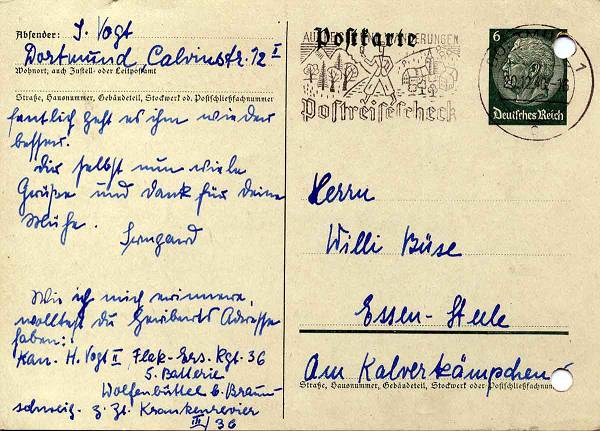 Absender: I. Vogt
Dortmund, Calvinstr. 12 I
Wohnort, auch Zustell- oder Leitpostamt
Straße, Hausnummer, Gebäudeteil, Stockwerk od. Postschließfachnummer
fentlich geht es ihm wieder
besser.
Dir selbst nun viele
Grüße und Dank für Deine
Mühe.
Irmgard
Wie ich mich erinnere,
wolltest du Heriberts Adresse
haben:
Kan. H. Vogt II Flak-Ers. Rgt. 36
5. Batterie
Wolfenbüttel b. Braun-
schweig. z. Zt. Krankenrevier
III/36
Postkarte
Postreisescheck
6
Deutsches Reich
Herrn
Willi Büse
Essen-Steele
Am Kalverkämpchen
Straße, Hausnummer, Gebäudeteil, Stockwerk oder Postschließfachnum